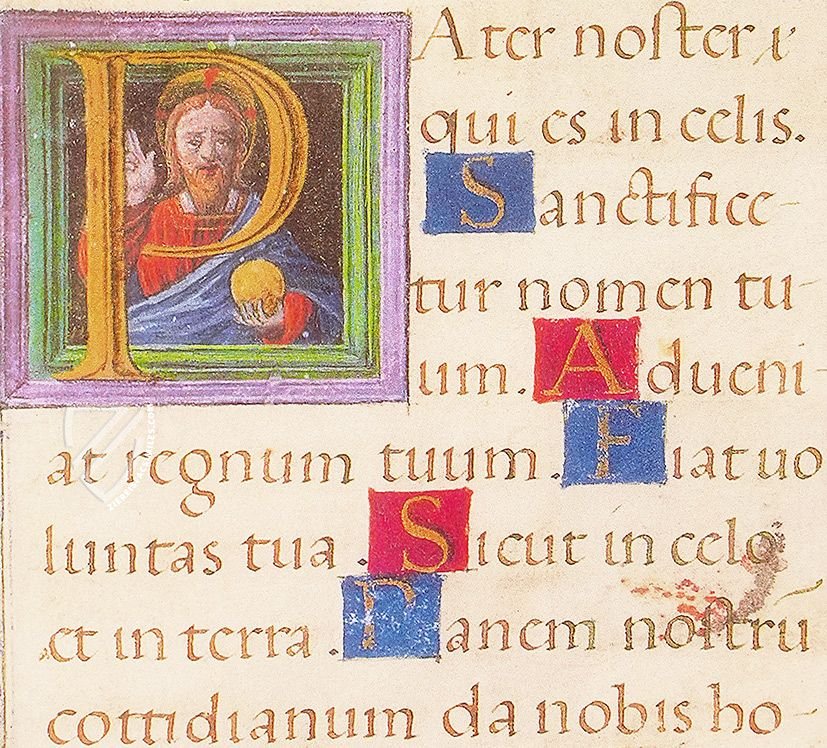 PAter noster
qui es in celis.
Sanctifice-
tur nomen tu-
um. Adueni-
at regnum tuum. Fiat uo
luntas tua. Sicut in celo
et in terra. Panem nostrū
cottidianum da nobis ho-